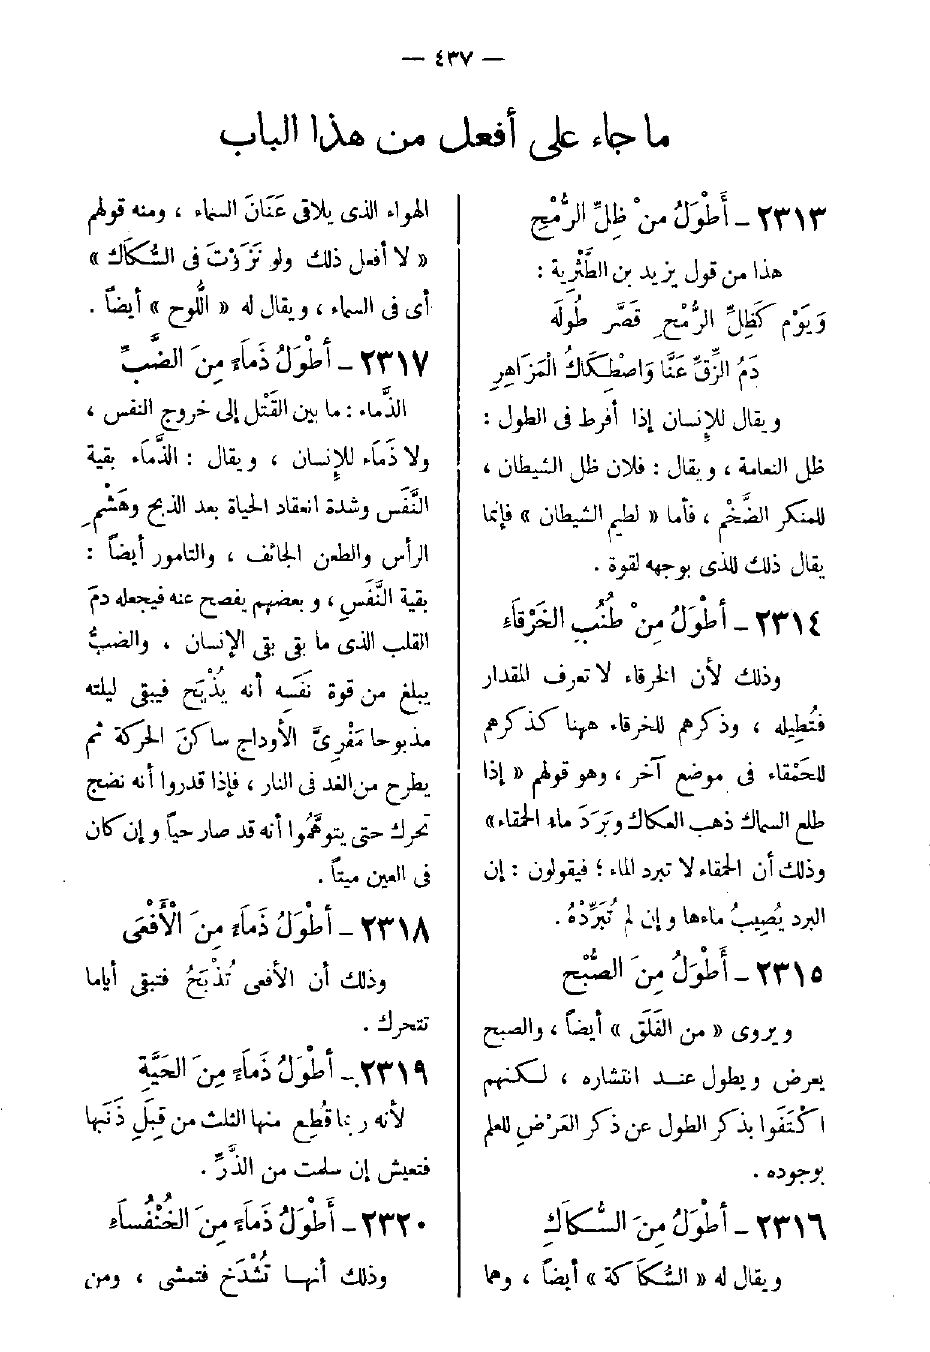 — ٤٣٧ —
ما جاء على أفعل من هذا الباب
٢٣١٣ – أَطْوَلُ منْ ظِلِّ الرُّمْحِ
هذا من قول يزيد بن الطَّثْرِية :
وَيَوْمٍ كَظِلِّ الرُّمْحِ قَصَّرَ طُولَهُ
دَمُ الزِّقِّ عَنَّا وَاصْطِكَاكُ الْمَزَاهِرِ
ويقال للإِنسان إذا أفرط فى الطول :
ظل النعامة ، ويقال : فلان ظل الشيطان ،
للمنكر الضَّخْم ، فأما « لطيم الشيطان » فإنما
يقال ذلك للذى بوجهه لقوة .
٢٣١٤ – أطْوَلُ مِنْ طُنُبِ الخَرْقَاءِ
وذلك لأن الخرقاء لا تعرف المقدار
فتُطِيله ، وذكرهم للخرقاء ههنا كذكرهم
للحَمْقاء فى موضع آخر ، وهو قولهم « إذا
طلع السماك ذهب العكاك وبَرَدَ ماء الحمقاء »
وذلك أن الحمقاء لا تبرد الماء ؛ فيقولون : إن
البرد يُصِيبُ ماءها وإن لم تُبَرِّدْهُ .
٢٣١٥ – أَطْوَلُ مِنَ الصُّبْحِ
ويروى « من الفَلَقِ » أيضاً ، والصبح
يعرض ويطول عنـد انتشاره ، لـكنهم
اكْتَفَوا بذكر الطول عن ذكر العَرْضِ للعلم
بوجوده .
٢٣١٦ – أطْوَلُ مِنَ السُّكاَكِ
ويقال له « السُّكاَكة » أيضاً ، وهما
الهواء الذى يلاقى عَنَانَ السماء ، ومنه قولهم
« لا أفعل ذلك ولو نَزَوْتَ فى السُّكَاك »
أى فى السماء ، ويقال له « اللُّوح » أيضاً .
٢٣١٧ – أطْوَلُ ذَمَاءً مِنَ الضَّبِّ
الذَّماء : ما بين القَتْل إلى خروج النفس ،
ولا ذَمَاء للإِنسان ، ويقال : الذَّمَاء بقية
النَّفَس وشدة انعقاد الحياة بعد الذبح وهَشْمِ
الرأس والطعن الجائف ، والتامور أيضاً :
بقية النَّفَسِ ، وبعضهم يفصح عنه فيجعله دمَ
القلب الذى ما بقى بقى الإنسان ، والضبُّ
يبلغ من قوة نَفَسِه أنه يُذْبَح فيبقى ليلته
مذبوحا مَفْرِىَّ الأوداج ساكنَ الحركة ثم
يطرح من الغد فى النار ، فإذا قدروا أنه نضج
تحرك حتى يتوهَّموا أنه قد صار حياً وإن كان
فى العين ميتاً .
٢٣١٨ – أطْوَلُ ذَمَاءً مِنَ الْأَفْعَى
وذلك أن الأفعى تُذْبَحُ فتبقى أياما
تتحرك .
٢٣١٩ – أطْوَلُ ذَمَاءً مِنَ الحَيَّةِ
لأنه ربما قُطِع منها الثلث من قِبَلِ ذَنَبها
فتعيش إن سلمت من الذَّرِّ .
٢٣٢٠ – أَطْوَلُ ذَمَاءً مِنَ الخُنْفُساَءِ
وذلك أنهـا تُشْدَخ فتمشى ، ومن